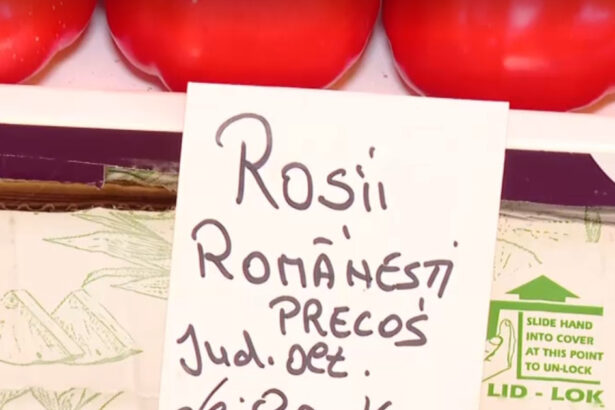 Rosii
ROMÂNESTI
PRECOS
Jud. Olt.
SLIDE HAND
INTO COVER
AT THIS POINT
TO UN-LOCK
LID - LOK